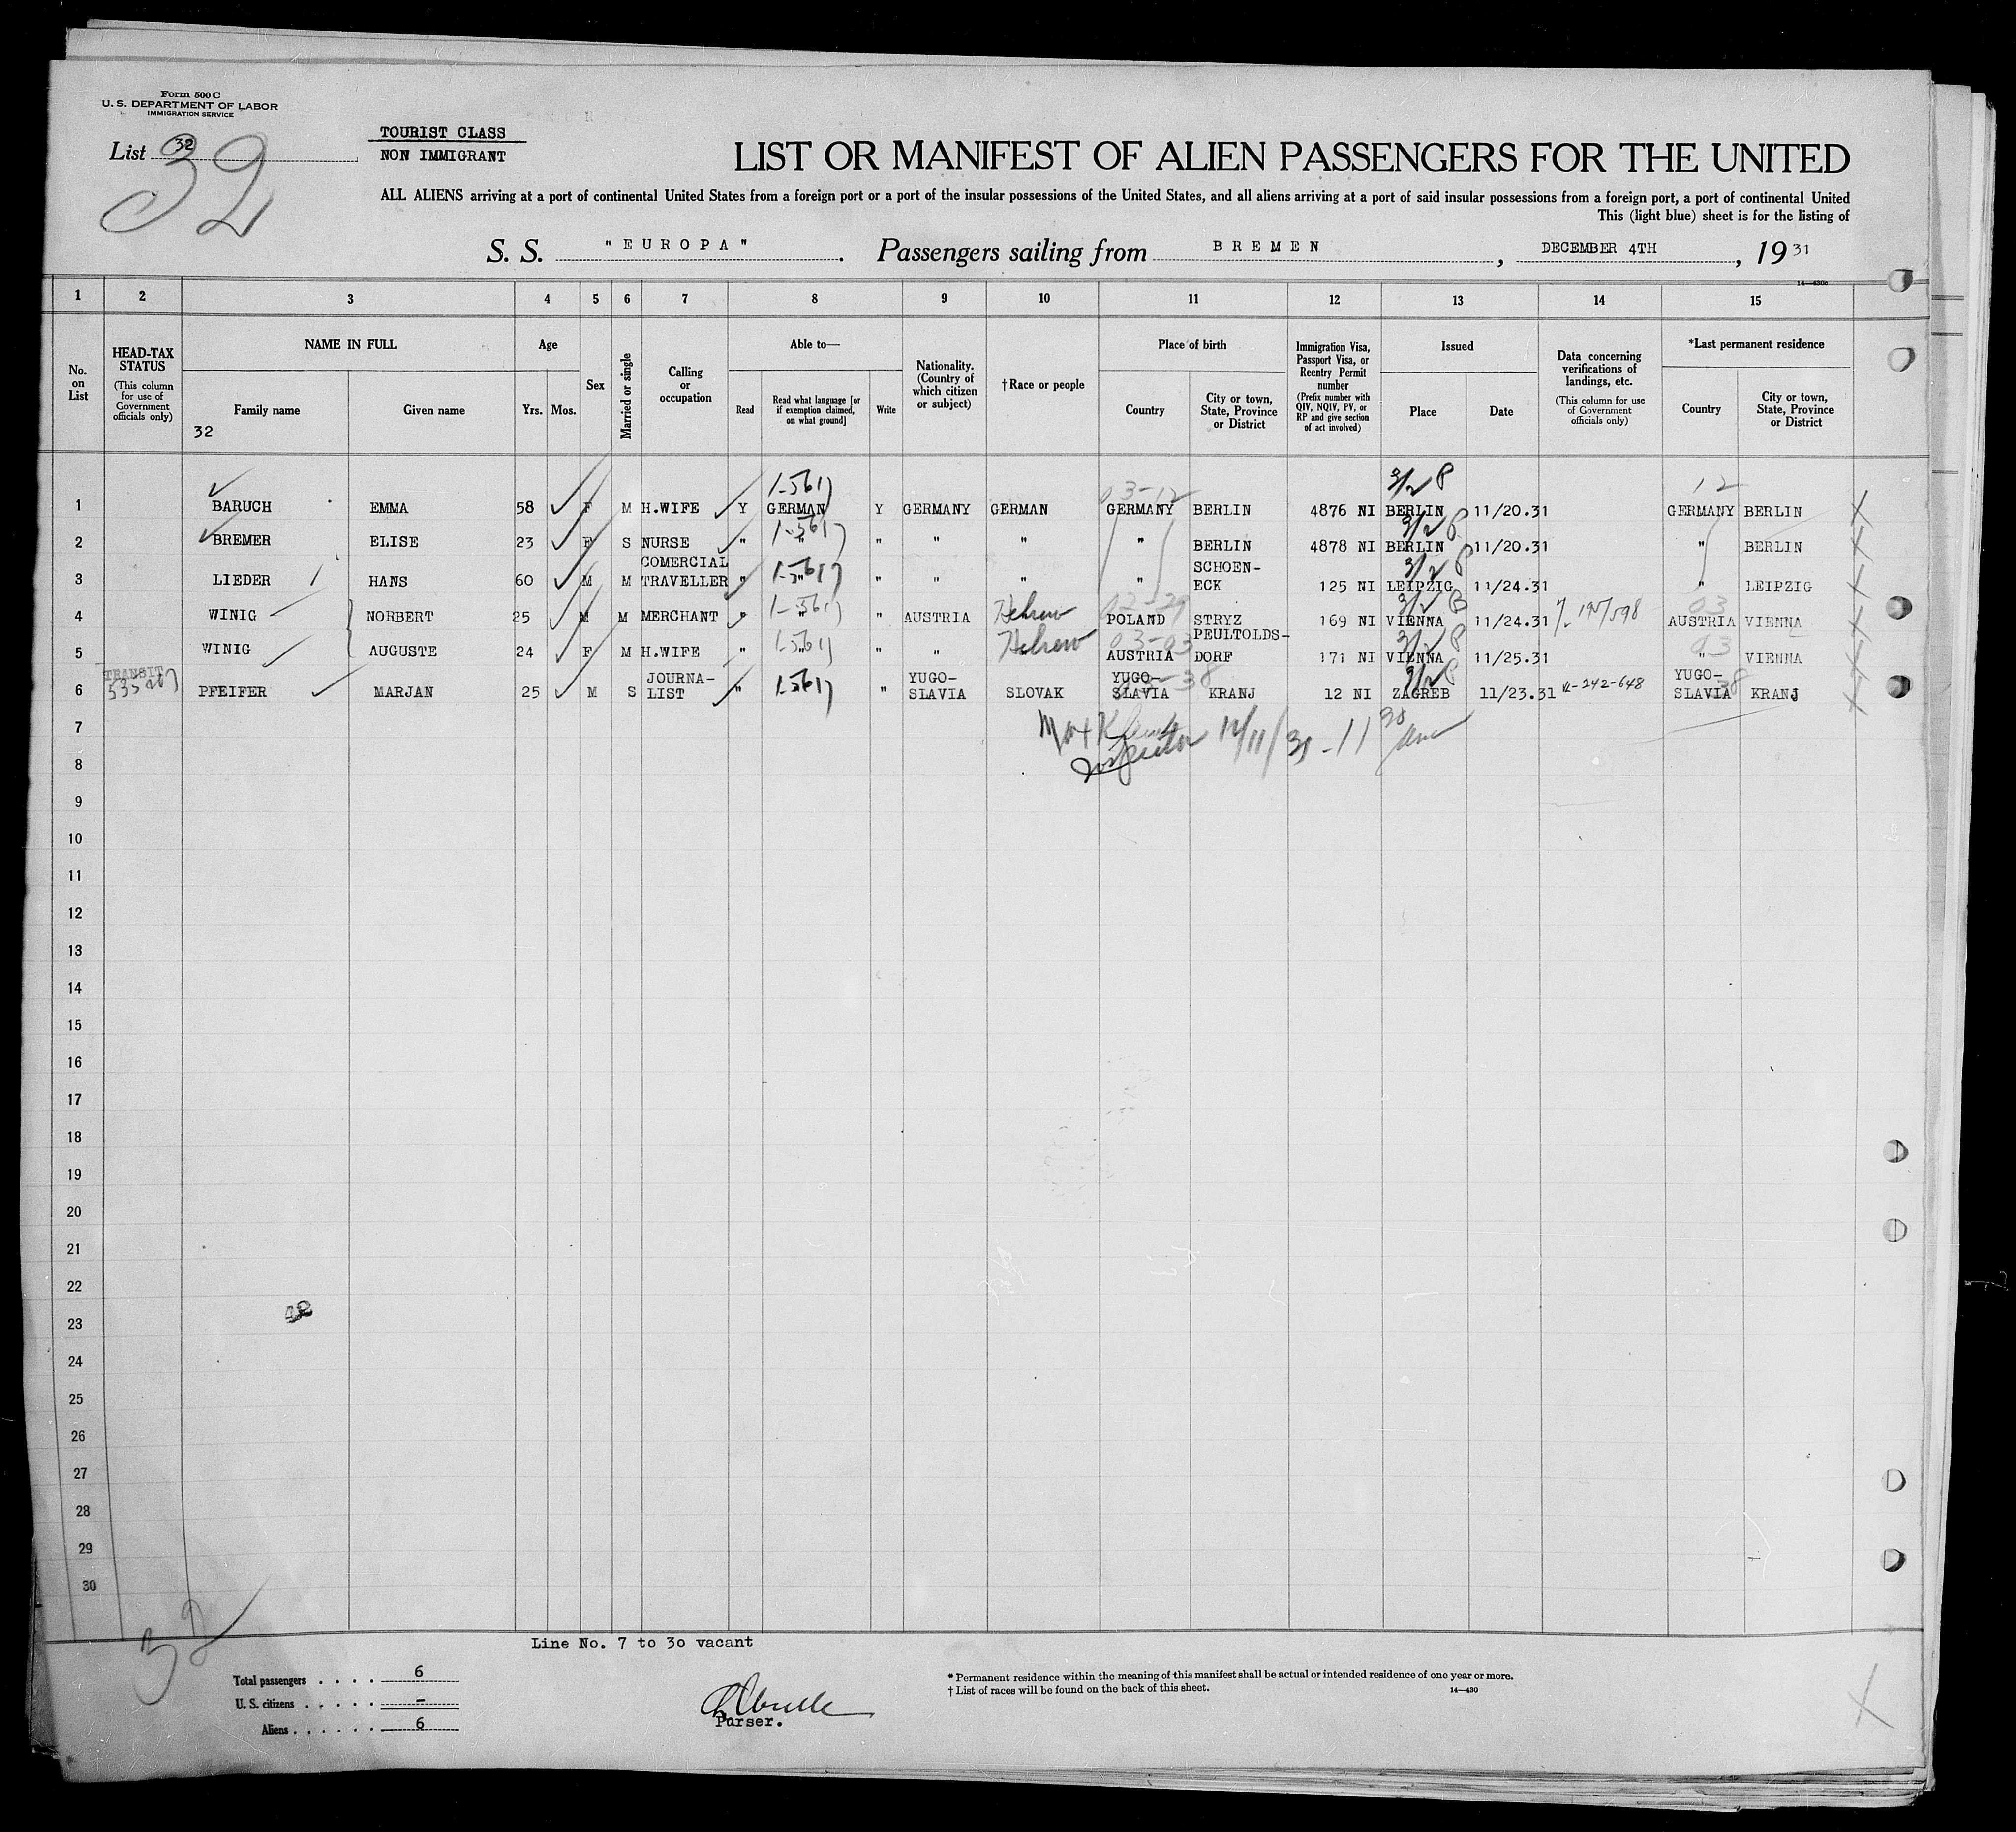 Form 500 C
U. S. DEPARTMENT OF LABOR
IMMIGRATION SERVICE
List 32
32
TOURIST CLASS
NON IMMIGRANT
LIST OR MANIFEST OF ALIEN PASSENGERS FOR THE UNITED
ALL ALIENS arriving at a port of continental United States from a foreign port or a port of the insular possessions of the United States, and all aliens arriving at a port of said insular possessions from a foreign port, a port of continental United
This (light blue) sheet is for the listing of
S. S. "EUROPA". Passengers sailing from BREMEN, DECEMBER 4TH, 1931
1 2 3 4 5 6 7 8 9 10 11 12 13 14 15
No. on List
HEAD-TAX STATUS (This column for use of Government officials only)
NAME IN FULL
Family name
Given name
32
Age
Yrs. Mos.
Sex
Married or single
Calling or occupation
Able to—
Read
Read what language [or if exemption claimed, on what ground]
Write
Nationality. (Country of which citizen or subject)
†Race or people
Place of birth
Country
City or town, State, Province or District
Immigration Visa, Passport Visa, or Reentry Permit number (Prefix number with QIV, NQIV, PV, or RP and give section of act involved)
Issued
Place
Date
Data concerning verifications of landings, etc. (This column for use of Government officials only)
*Last permanent residence
Country
City or town, State, Province or District
1 BARUCH EMMA 58 F M H.WIFE Y GERMAN Y GERMANY GERMAN 03-12 GERMANY BERLIN 4876 NI BERLIN 11/20.31 12 GERMANY BERLIN
2 BREMER ELISE 23 F S NURSE " " " " " " BERLIN 4878 NI BERLIN 11/20.31 " BERLIN
3 LIEDER HANS 60 M M COMERCIAL TRAVELLER " " " " " " SCHOEN-ECK 125 NI LEIPZIG 11/24.31 " LEIPZIG
4 WINIG NORBERT 25 M M MERCHANT " " AUSTRIA Hebrew POLAND STRYZ 169 NI VIENNA 11/24.31 03 AUSTRIA VIENNA
5 WINIG AUGUSTE 24 F M H.WIFE " " " " Hebrew 03-03 AUSTRIA PEULTOLDS-DORF 171 NI VIENNA 11/25.31 03 " VIENNA
TRANSIT
6 PFEIFER MARJAN 25 M S JOURNA-LIST " " YUGO-SLAVIA SLOVAK YUGO-SLAVIA KRANJ 12 NI ZAGREB 11/23.31 242-648 38 YUGO-SLAVIA KRANJ
7
Inspector
8
9
10
11
12
13
14
15
16
17
18
19
20
21
22
23
24
25
26
27
28
29
30
32
Line No. 7 to 30 vacant
Total passengers . . . . 6
U. S. citizens . . . . . –
Aliens . . . . . . 6
Purser.
* Permanent residence within the meaning of this manifest shall be actual or intended residence of one year or more.
† List of races will be found on the back of this sheet.
14—430